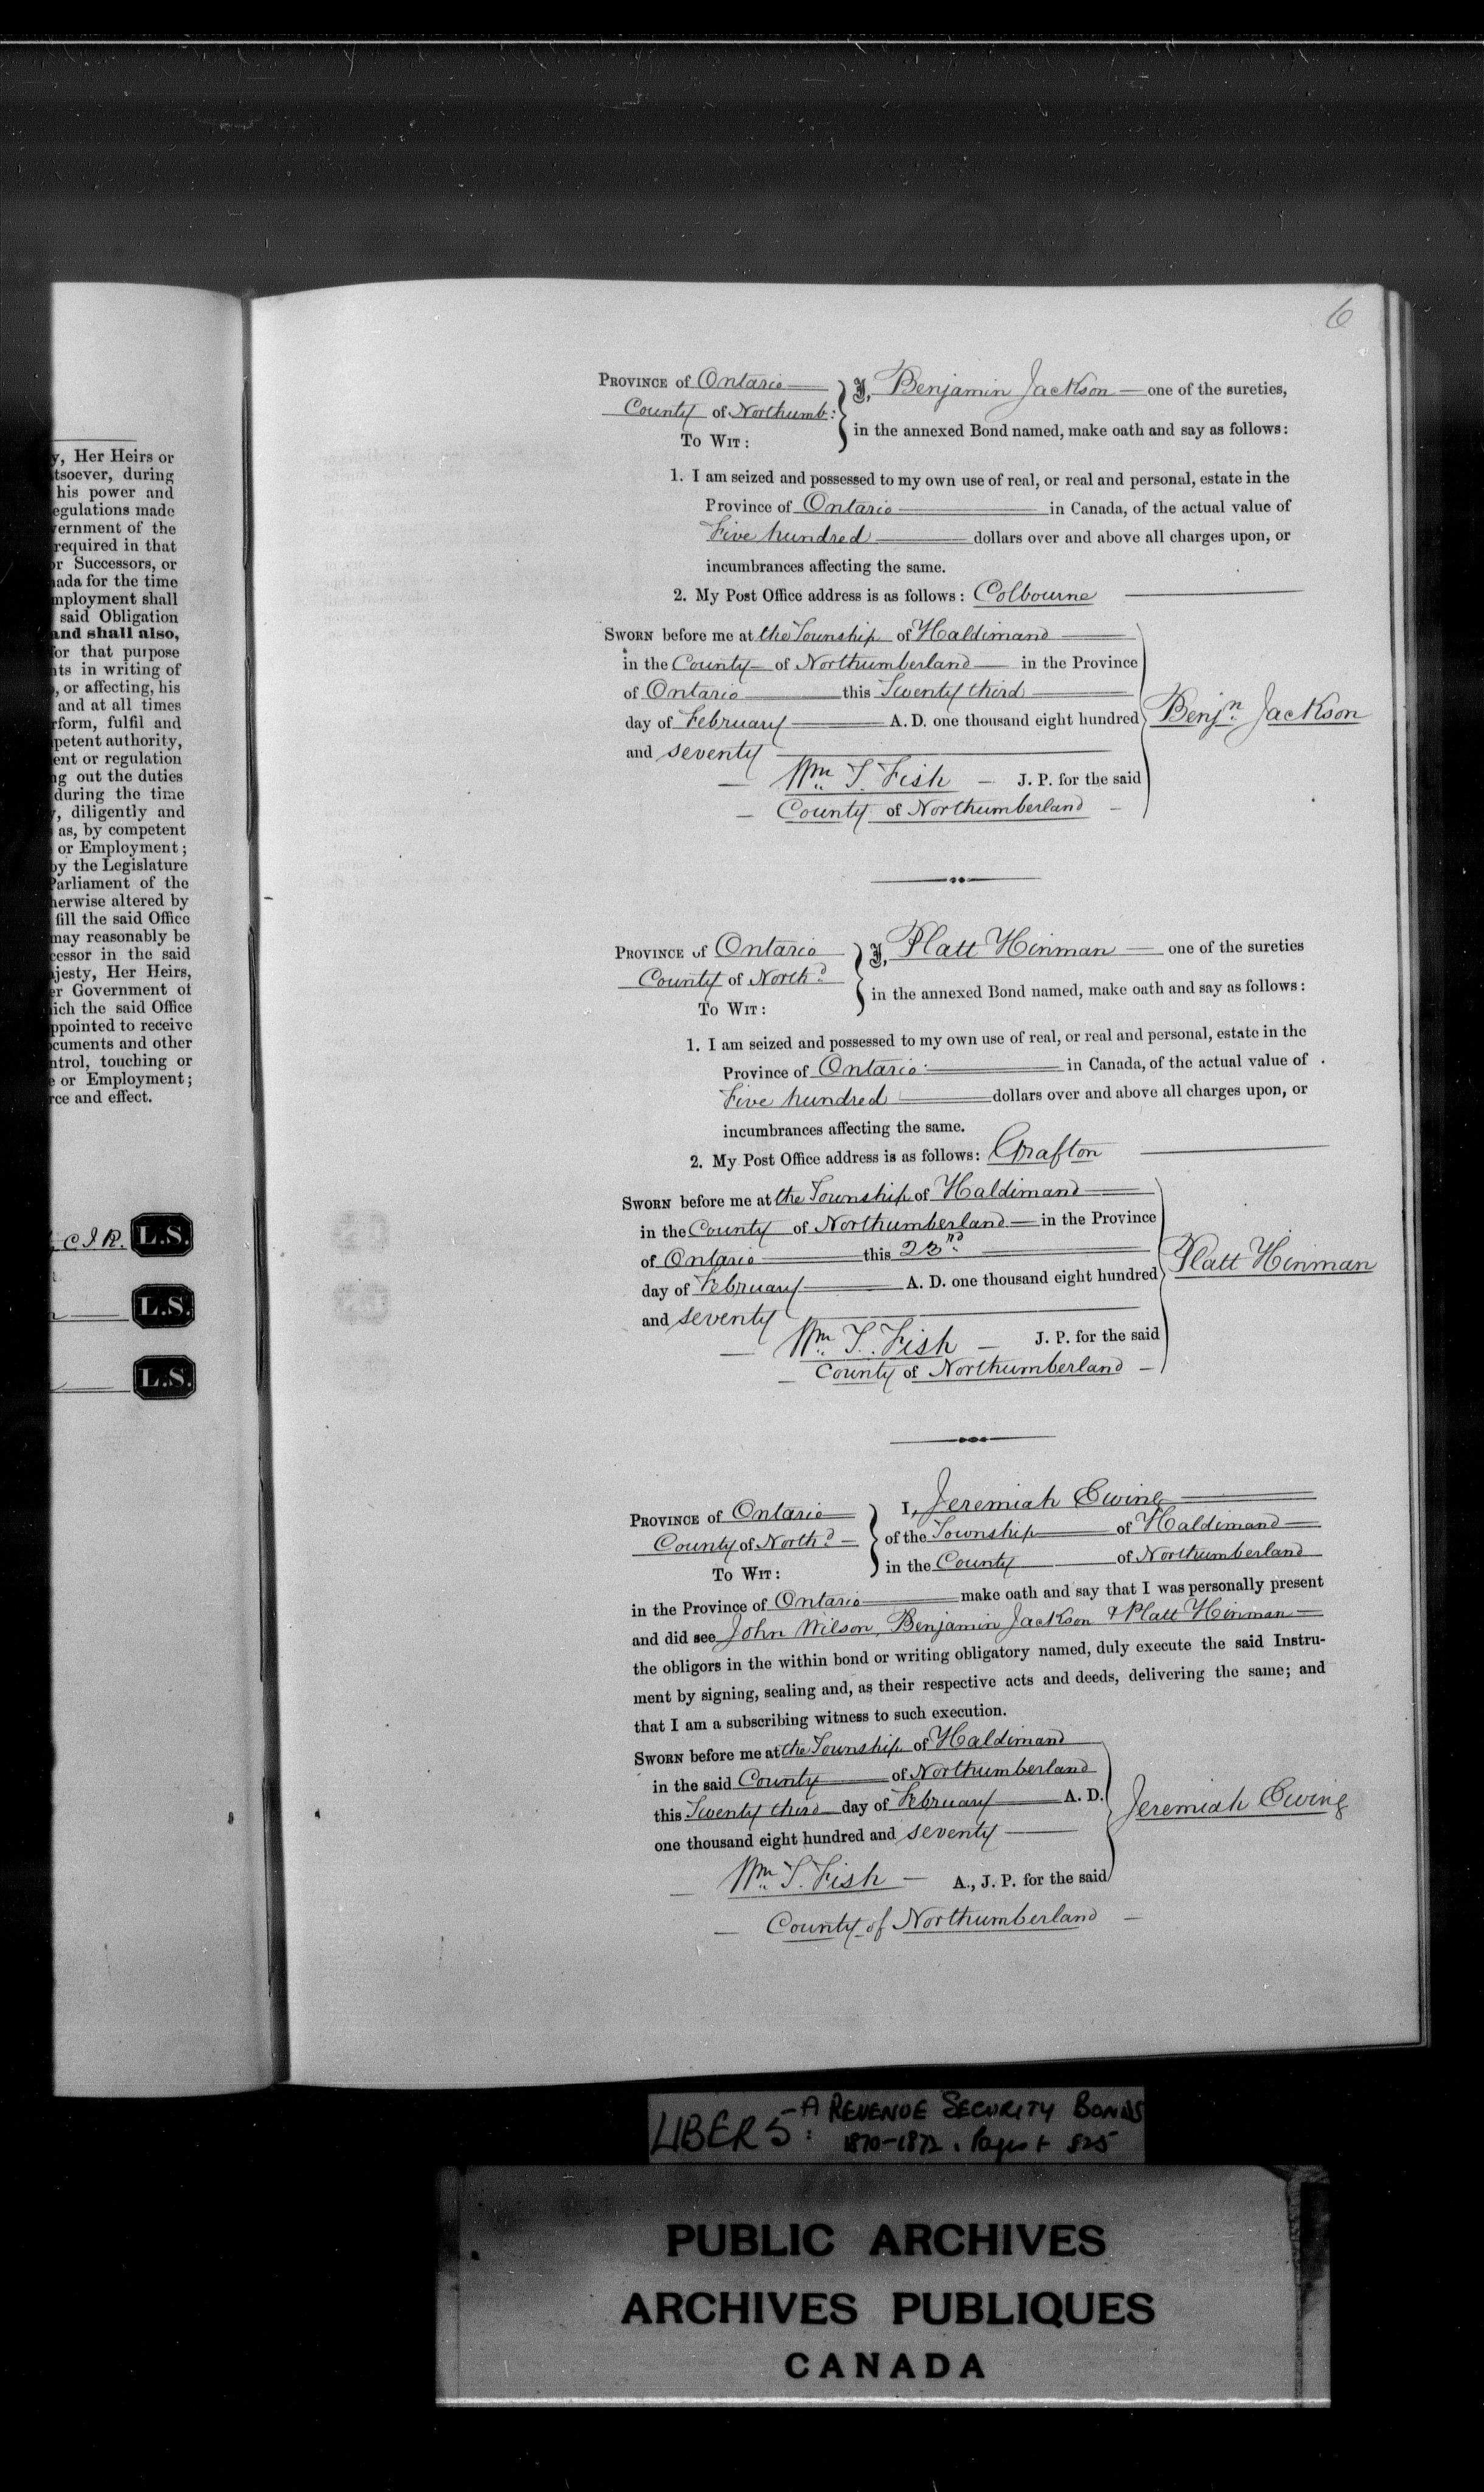 y, Her Heirs or
tsoever, during
his power and
egulations made
vernment of the
required in that
or Successors, or
nada for the time
mployment shall
said Obligation
and shall also,
for that purpose
nts in writing of
, or affecting, his
and at all times
rform, fulfil and
petent authority,
ent or regulation
ng out the duties
during the time
y, diligently and
as, by competent
or Employment;
by the Legislature
Parliament of the
herwise altered by
fill the said Office
may reasonably be
cessor in the said
jesty, Her Heirs,
er Government of
ich the said Office
ppointed to receive
ocuments and other
ntrol, touching or
e or Employment;
rce and effect.
C I R. L.S.
L.S.
L.S.
6
PROVINCE of Ontario
County of Northumb:
TO WIT:
I, Benjamin Jackson one of the sureties,
in the annexed Bond named, make oath and say as follows:
1. I am seized and possessed to my own use of real, or real and personal, estate in the
Province of Ontario in Canada, of the actual value of
Five hundred dollars over and above all charges upon, or
incumbrances affecting the same.
2. My Post Office address is as follows: Colbourne
SWORN before me at the Township of Haldimand
in the County of Northumberland in the Province
of Ontario this Twenty third
day of February A. D. one thousand eight hundred
and seventy
Benjn. Jackson
Wm. T. Fish J. P. for the said
County of Northumberland
PROVINCE of Ontario
County of Northd.
TO WIT:
I, Platt Hinman one of the sureties
in the annexed Bond named, make oath and say as follows:
1. I am seized and possessed to my own use of real, or real and personal, estate in the
Province of Ontario in Canada, of the actual value of
Five hundred dollars over and above all charges upon, or
incumbrances affecting the same.
2. My Post Office address is as follows: Grafton
SWORN before me at the Township of Haldimand
in the County of Northumberland in the Province
of Ontario this 23rd.
day of February A. D. one thousand eight hundred
and seventy
Platt Hinman
Wm. T. Fish J. P. for the said
County of Northumberland
PROVINCE of Ontario
County of Northd.
TO WIT:
I, Jeremiah Ewing
of the Township of Haldimand
in the County of Northumberland
in the Province of Ontario make oath and say that I was personally present
and did see John Wilson, Benjamin Jackson & Platt Hinman
the obligors in the within bond or writing obligatory named, duly execute the said Instru-
ment by signing, sealing and, as their respective acts and deeds, delivering the same; and
that I am a subscribing witness to such execution.
SWORN before me at the Township of Haldimand
in the said County of Northumberland
this Twenty third day of February A. D.
one thousand eight hundred and seventy
Jeremiah Ewing
Wm. T. Fish A., J. P. for the said
County of Northumberland
LIBER 5: -A REVENUE SECURITY BONDS
1870-1872. Pages 1- 825
PUBLIC ARCHIVES
ARCHIVES PUBLIQUES
CANADA